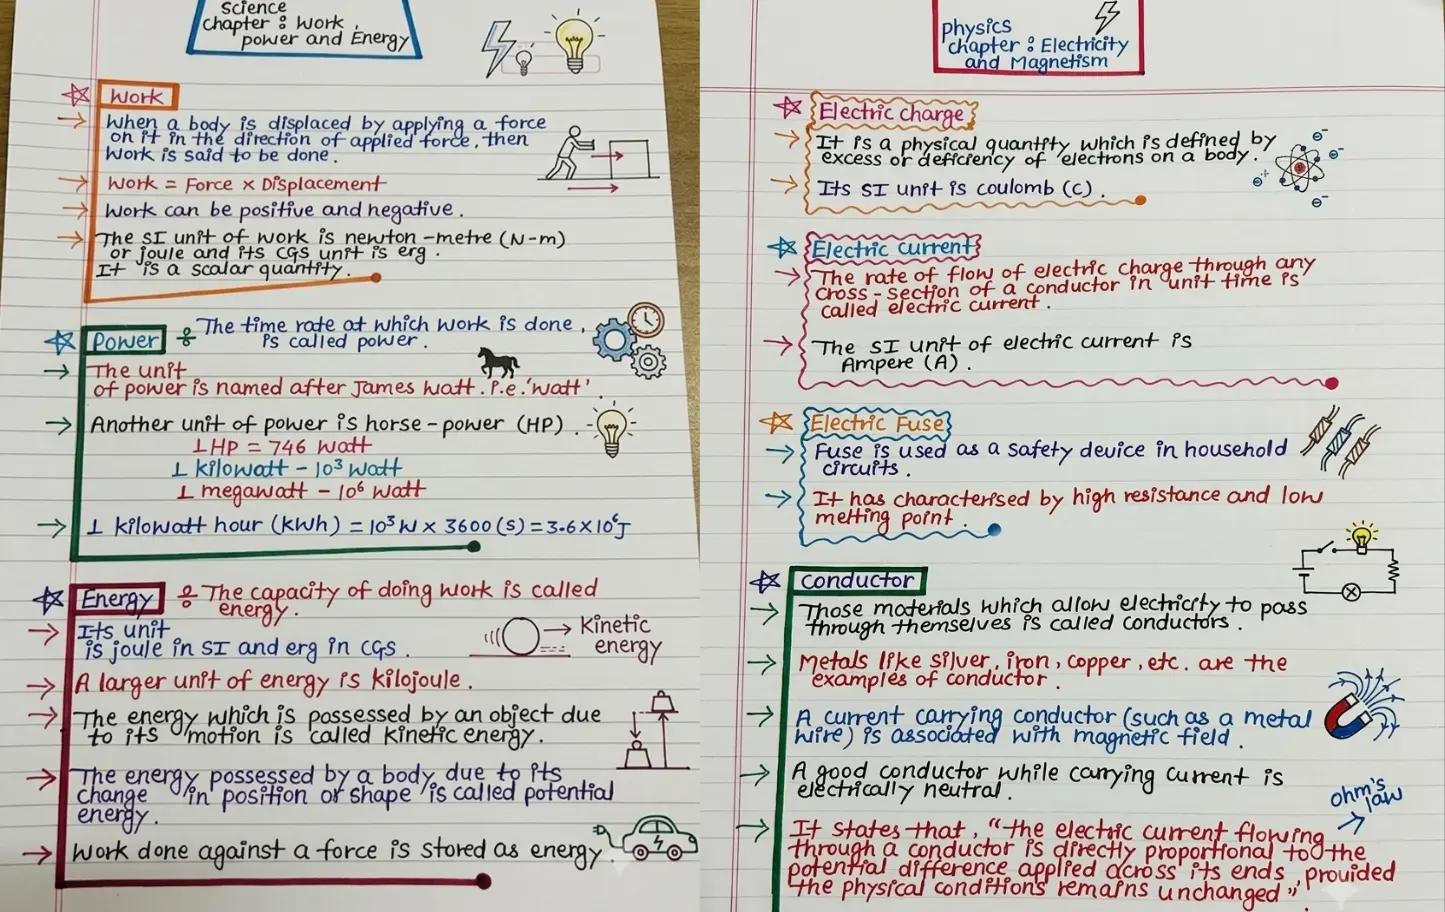 Science
chapter : Work,
power and Energy
Work
When a body is displaced by applying a force
on it in the direction of applied force, then
work is said to be done.
Work = Force × Displacement
Work can be positive and negative.
The SI unit of work is newton-metre (N-m)
or joule and its CGS unit is erg.
It is a scalar quantity.
Power ÷ The time rate at which work is done,
is called power.
The unit
of power is named after James Watt. i.e. 'Watt'
Another unit of power is horse-power (HP).
1 HP = 746 Watt
1 kilowatt - 10³ Watt
1 megawatt - 10⁶ Watt
1 kilowatt hour (kWh) = 10³ W × 3600 (s) = 3.6×10⁶J
Energy ÷ The capacity of doing work is called
energy.
Its unit
is joule in SI and erg in CGS.
Kinetic
energy
A larger unit of energy is kilojoule.
The energy which is possessed by an object due
to its motion is called kinetic energy.
The energy possessed by a body due to its
change in position or shape is called potential
energy.
Work done against a force is stored as energy.
physics
chapter : Electricity
and Magnetism
Electric charge
It is a physical quantity which is defined by
excess or deficiency of electrons on a body.
Its SI unit is coulomb (c).
Electric current
The rate of flow of electric charge through any
cross-section of a conductor in unit time is
called electric current.
The SI unit of electric current is
Ampere (A).
Electric Fuse
Fuse is used as a safety device in household
circuits.
It has characterised by high resistance and low
melting point.
conductor
Those materials which allow electricity to pass
through themselves is called conductors.
Metals like silver, iron, copper, etc. are the
examples of conductor.
A current carrying conductor (such as a metal
wire) is associated with magnetic field.
A good conductor while carrying current is
electrically neutral.
ohm's
law
It states that, "the electric current flowing
through a conductor is directly proportional to the
potential difference applied across its ends, provided
the physical conditions remains unchanged".